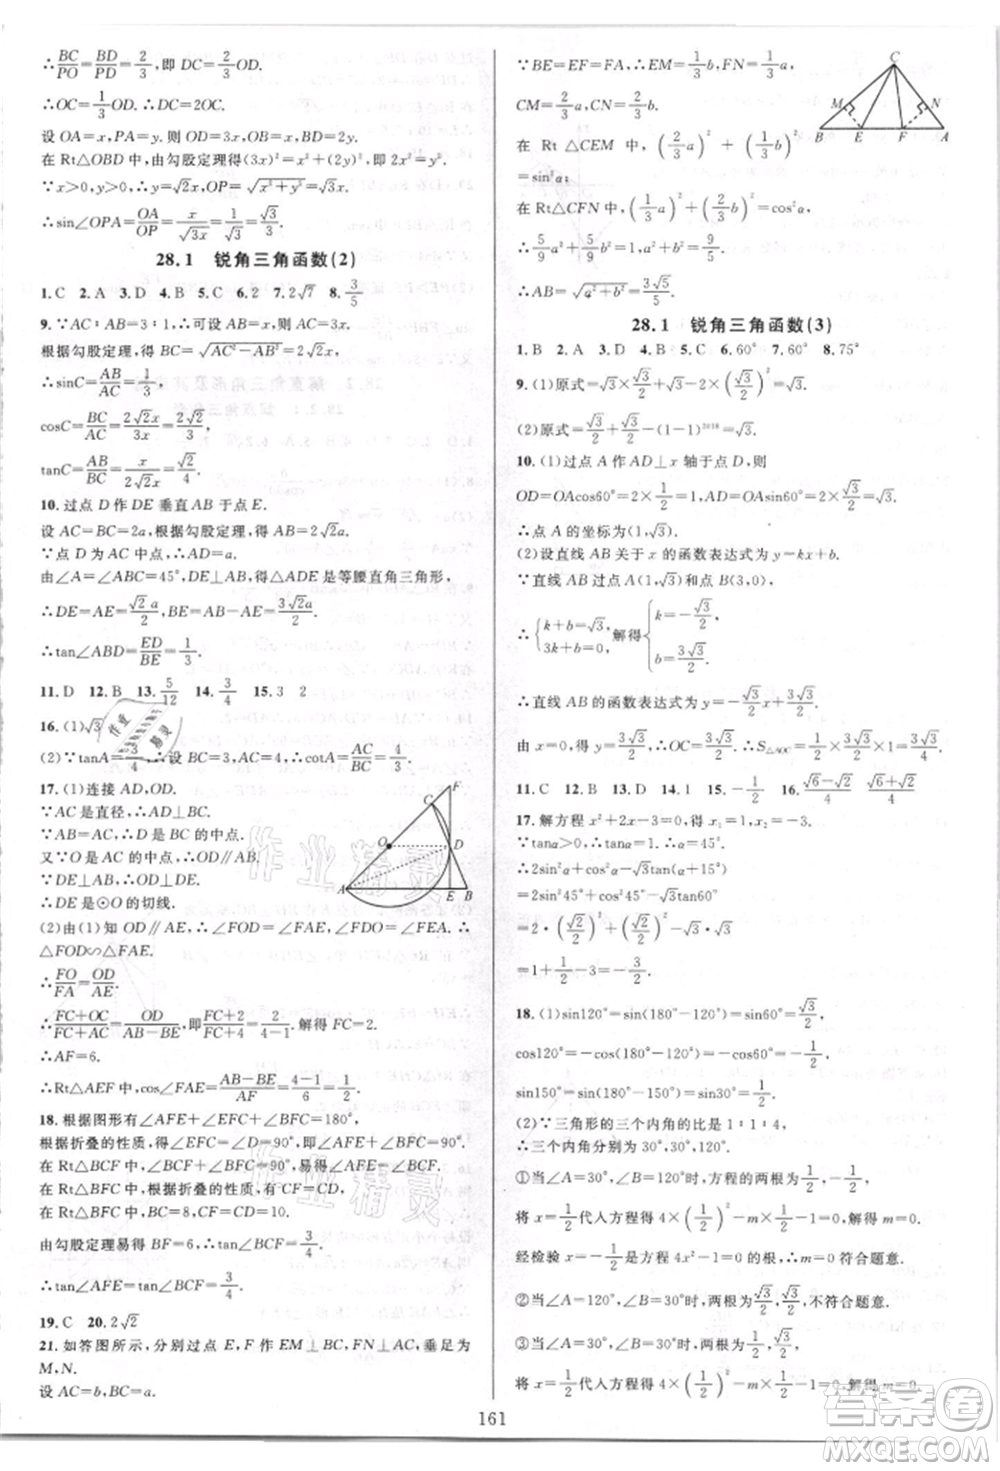 ∴BC/PO=BD/PD=2/3,即 DC=2/3OD.
∴OC=1/3OD.∴DC=2OC.
设 OA=x,PA=y.则 OD=3x,OB=x,BD=2y.
在 Rt△OBD 中,由勾股定理得(3x)²=x²+(2y)²,即 2x²=y².
∵x>0,y>0,∴y=√2x,OP=√(x²+y²)=√3x.
∴sin∠OPA=OA/OP=x/(√3x)=1/√3=√3/3.
28.1 锐角三角函数(2)
1.C 2.A 3.D 4.B 5.C 6.2 7.2√7 8.3/5
9.∵AC∶AB=3∶1,∴可设 AB=x,AC=3x.
根据勾股定理,得 BC=√(AC²-AB²)=2√2x.
∴sinC=AB/AC=x/3x=1/3,
cosC=BC/AC=2√2x/3x=2√2/3,
tanC=AB/BC=x/(2√2x)=√2/4.
10.过点 D 作 DE 垂直 AB 于点 E.
设 AC=BC=2a,根据勾股定理得 AB=2√2a.
∵点 D 为 AC 中点,∴AD=a.
由∠A=∠ABC=45°,又 DE⊥AB,得△ADE 是等腰直角三角形,
∴DE=AE=√2a/2.∴BE=AB-AE=3√2a/2.
∴tan∠ABD=ED/BE=1/3.
11.D 12.B 13.5/12 14.3/4 15.3 2
16.(1)√3
(2)∵tanA=3/4,∴设 BC=3,AC=4,∴cotA=AC/BC=4/3.
17.(1)连接 AD,OD.
∵AC 是直径,∴AD⊥BC.
∵AB=AC,∴D 是 BC 的中点.
又∵O 是 AC 的中点,∴OD∥AB.
∵DE⊥AB,∴OD⊥DE.
∴DE 是⊙O 的切线.
(2)由(1)知 OD∥AE,∴∠FOD=∠FAE,∠FDO=∠FEA. ∴
△FOD∽△FAE.
∴FO/FA=OD/AE.
∴(FC+OC)/(FC+AC)=OD/(AB-BE),即(FC+2)/(FC+4)=2/(4-1).解得 FC=2.
∴AF=6.
∴Rt△AEF 中,cos∠FAE=AE/AF=(AB-BE)/AF=(4-1)/6=1/2.
18.根据图形有∠AFE+∠EFC+∠BFC=180°,
根据折叠的性质,∠EFC=∠EDC=90°,即∠AFE+∠BFC=90°.
在 Rt△BCF 中,有∠BCF+∠BFC=90°,易得∠AFE=∠BCF.
在 Rt△BFC 中,根据折叠的性质,有 CF=CD=10,BC=8,
由勾股定理易得 BF=6,则 tan∠BCF=3/4.
∴tan∠AFE=tan∠BCF=3/4.
19.C 20.2√2
21.如答图所示,分别过点 E,F 作 EM⊥BC,FN⊥AC,垂足为
M,N.
设 AC=b,BC=a.
∵BE=EF=FA,∴EM=1/3b,FN=1/3a,
CM=2/3a,CN=2/3b.
在 Rt △CEM 中,(2/3a)²+(1/3b)²
=sin²α;
在 Rt△CFN 中,(1/3a)²+(2/3b)²=cos²α,
∴5/9a²+5/9b²=1.
∴AB=√(a²+b²)=3√5/5.
C M N E F B E F A
A B C D E F O
28.1 锐角三角函数(3)
1.B 2.A 3.D 4.B 5.C 6.60° 7.60° 8.75°
9.(1)原式=√3×√3/2-2×(√2/2)²=3/2-1=1/2.
(2)原式=√3/2-(1-1)²⁰¹⁸=√3/2.
10.(1)过点 A 作 AD⊥x 轴于点 D,则
OD=OAcos60°=2×1/2=1,AD=OAsin60°=2×√3/2=√3,
∴点 A 的坐标为(1,√3).
(2)设直线 AB 关于 x 的函数表达式为 y=kx+b.
∵直线 AB 过点 A(1,√3)和点 B(3,0),
∴{k+b=√3, 3k+b=0, 解得{k=-√3/2, b=3√3/2.
∴直线 AB 的函数表达式为 y=-√3/2x+3√3/2.
由 x=0,得 y=3√3/2,∴OC=3√3/2.∴S△AOC=1/2×3√3/2×1=3√3/4.
11.C 12.B 13.D 14.1 15.-1/2 16.(√6-√2)/4 (√6+√2)/4
17.解方程 x²+2x-3=0,得 x₁=1,x₂=-3.
∵tanα>0,∴tanα=1,∴α=45°.
∴2sin²α+cos²α-√3tan(α+15°)
=2sin²45°+cos²45°-√3tan60°
=2·(√2/2)²+(√2/2)²-√3·√3
=1+1/2-3=-3/2.
18.(1)sin120°=sin(180°-120°)=sin60°=√3/2,
cos120°=-cos(180°-120°)=-cos60°=-1/2,
sin150°=sin(180°-150°)=sin30°=1/2.
(2)∵三角形的三个内角的比是 1∶1∶4,
∴三个内角分别为 30°,30°,120°.
①当∠A=30°,∠B=120°时,方程的两根为1/2,-1/2,
将 x=1/2代入方程得 4×(1/2)²-m×1/2-1=0,解得 m=0.
经检验 x=-1/2是方程 4x²-1=0 的根,∴m=0 符合题意.
②当∠A=120°,∠B=30°时,两根为√3/2,√3/2,不符合题意.
③当∠A=30°,∠B=30°时,两根为1/2,√3/2,
将 x=1/2代入方程得 4×(1/2)²-m×1/2-1=0,解得 m=0.
161
作业精灵
作业精灵
作业精灵
答案圈
MXQE.COM